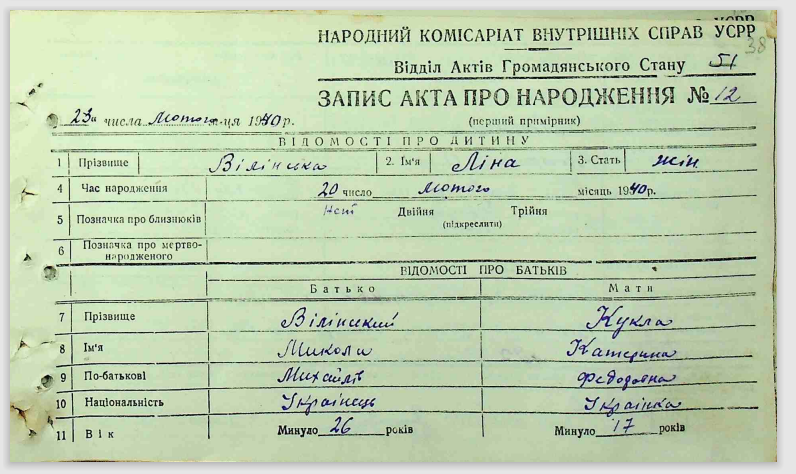 НАРОДНИЙ КОМІСАРІАТ ВНУТРІШНІХ СПРАВ УСРР
38
Відділ Актів Громадянського Стану 51
ЗАПИС АКТА ПРО НАРОДЖЕННЯ № 12
23 числа Лютого ця 1940 р. (перший примірник)
ВІДОМОСТІ ПРО ДИТИНУ
1 Прізвище Вілінська 2. Ім'я Ліна 3. Стать жін
4 Час народження 20 число Лютого місяць 1940 р.
5 Позначка про близнюків Нет Двійня Трійня
(підкреслити)
6 Позначка про мертво-
народженого
ВІДОМОСТІ ПРО БАТЬКІВ
Батько Мати
7 Прізвище Вілінський Кукла
8 Ім'я Микола Катерина
9 По-батькові Михайлів Федоровна
10 Національність Українець Українка
11 Вік Минуло 26 років Минуло 17 років